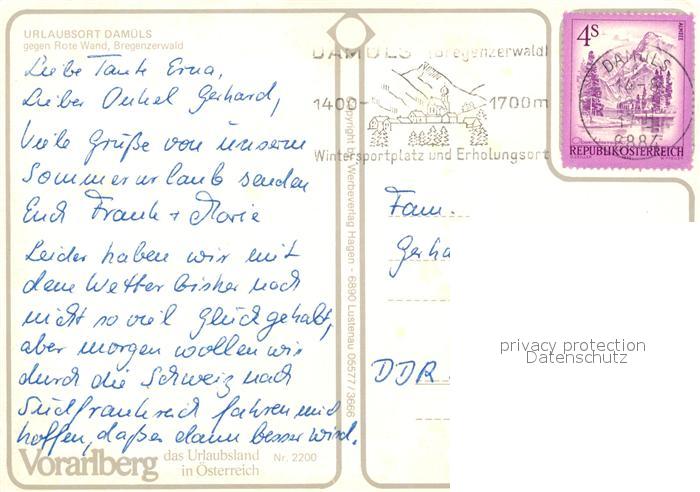 URLAUBSORT DAMÜLS
gegen Rote Wand, Bregenzerwald
Liebe Tante Erna,
Lieber Onkel Gerhard,
Viele Grüße von unserm
Sommerurlaub senden
Euch Frank + Marie
Leider haben wir mit
dem Wetter bisher noch
nicht so viel Glück gehabt,
aber morgen wollen wir
durch die Schweiz nach
Südfrankreich fahren und
hoffen, daß es dann besser wird.
Vorarlberg das Urlaubsland
in Österreich
Nr. 2200
Copyright by Werbeverlag Hagen - 6890 Lustenau 05577/3666
DAMÜLS (Bregenzerwald)
1400- 1700m
Wintersportplatz und Erholungsort
4S
ALMSEE
DAMÜLS
6884
REPUBLIK ÖSTERREICH
Fam.
Gerha
DDR
privacy protection
Datenschutz